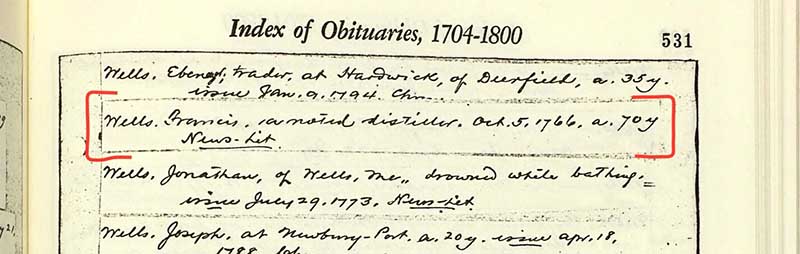 Index of Obituaries, 1704-1800
531
Wells. Ebenezr, trader, at Hardwick, of Deerfield, a. 35 y.
issue Jan. 9. 1794. Chr.
Wells. Francis. a noted distiller. Oct. 5. 1766. a. 70 y
News-Let.
Wells. Jonathan, of Wells, Me., drowned while bathing.
issue July 29. 1773. News-Let.
Wells. Joseph, at Newbury-Port. a. 20 y. issue Apr. 18,
1788.